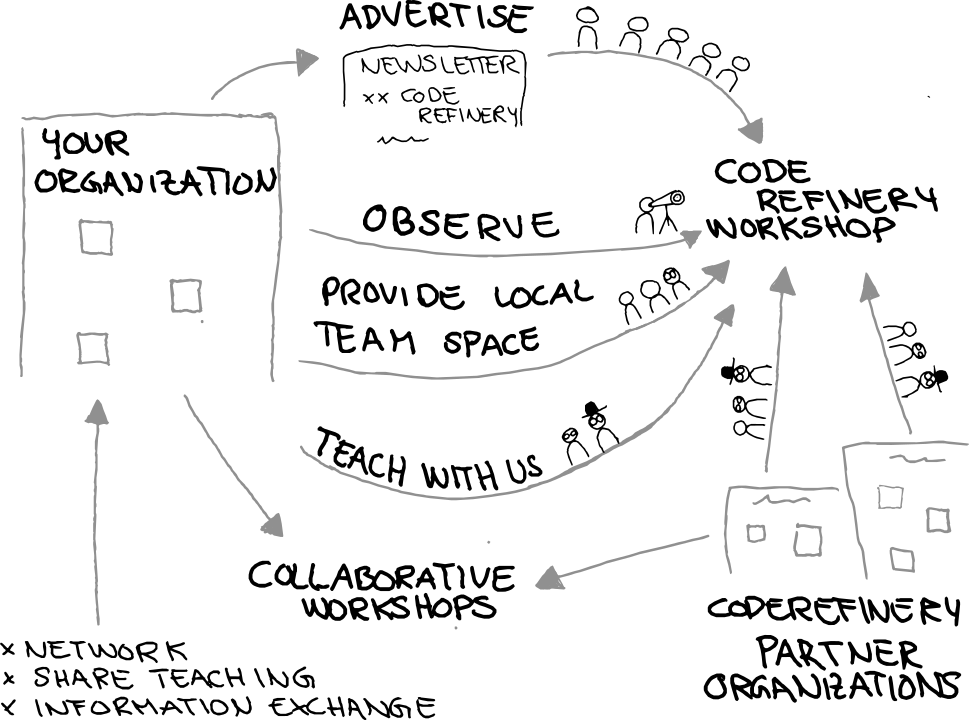 ADVERTISE
NEWSLETTER
xx CODE
REFINERY
YOUR
ORGANIZATION
CODE
REFINERY
WORKSHOP
OBSERVE
PROVIDE LOCAL
TEAM SPACE
TEACH WITH US
COLLABORATIVE
WORKSHOPS
CODEREFINERY
PARTNER
ORGANIZATIONS
x NETWORK
x SHARE TEACHING
x INFORMATION EXCHANGE